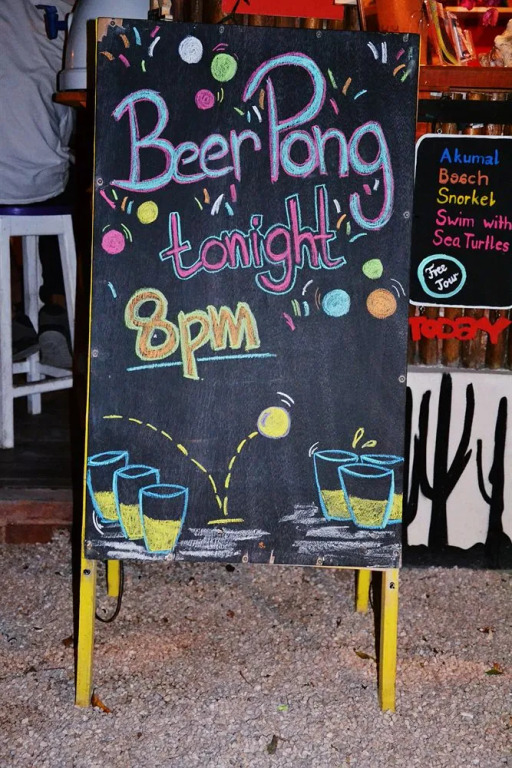 Beer Pong
tonight
8pm
Akumal
Beach
Snorkel
Swim with
Sea Turtles
Free
Tour
TODAY